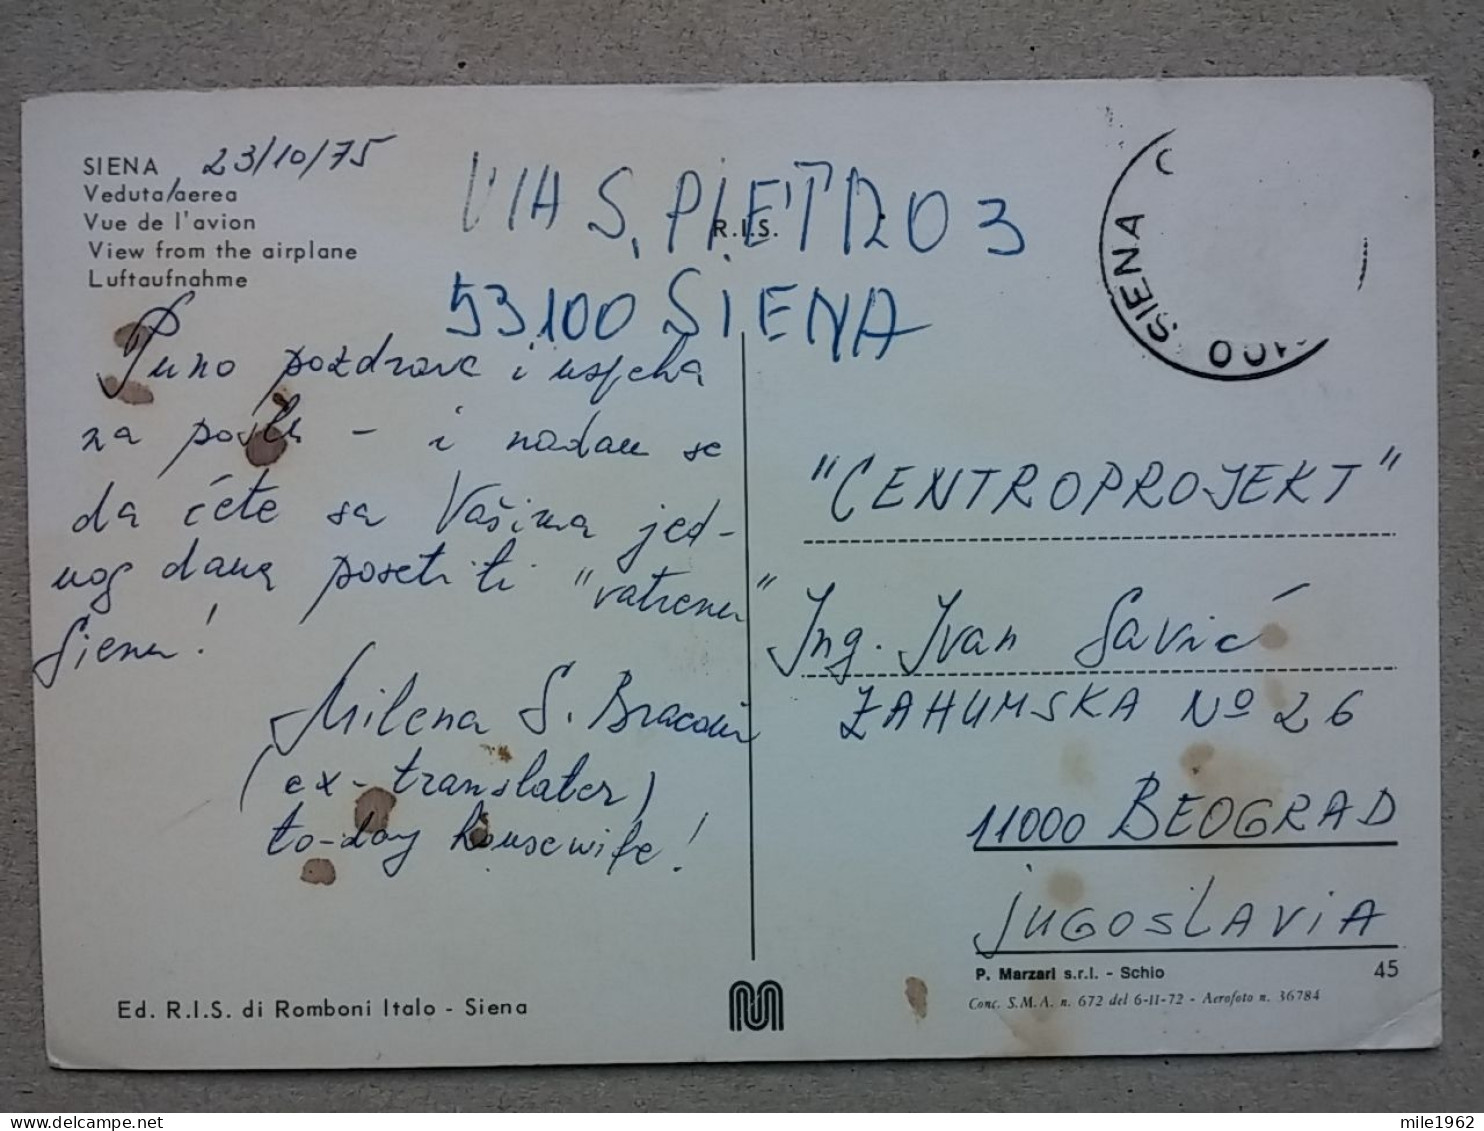 SIENA 23/10/75
Veduta/aerea
Vue de l'avion
View from the airplane
Luftaufnahme
VIA S. PIETRO 3
R.I.S.
53100 SIENA
SIENA
Puno pozdrava i uspjeha
za posle - i nadam se
da ćete sa Vašima jed-
nog dana posetiti "vatrenu"
Sienu!
Milena S.
(ex-translater)
to-day housewife!
"CENTROPROJEKT"
Ing. Ivan Savić
ZAHUMSKA Nº 26
11000 BEOGRAD
JUGOSLAVIA
P. Marzari s.r.l. - Schio 45
Conc. S.M.A. n. 672 del 6-11-72 - Aerofoto n. 36784
Ed. R.I.S. di Romboni Italo - Siena
mile1962